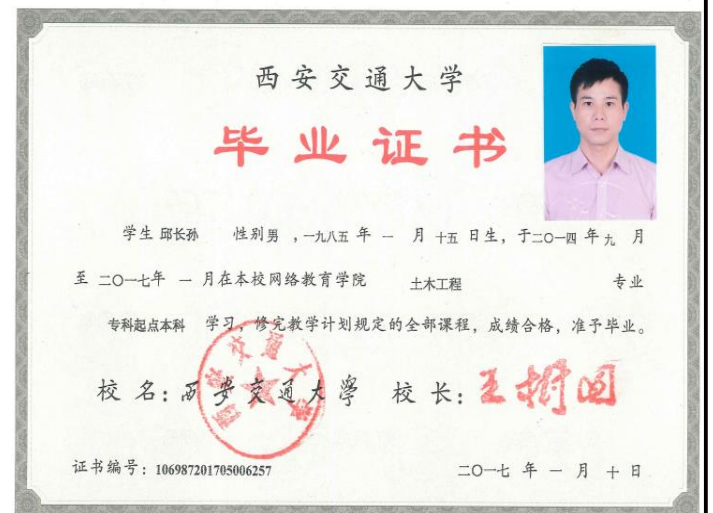 西安交通大学
毕业证书
学生 邱长孙 性别 男 ，一九八五 年 一 月 十五 日生，于二〇一四 年 九 月
至 二〇一七年 一 月在本校网络教育学院 土木工程 专业
专科起点本科 学习，修完教学计划规定的全部课程，成绩合格，准予毕业。
校 名：西安交通大学 校 长：王树国
西安交通大学
证书编号：106987201705006257
二〇一七 年 一 月 十 日